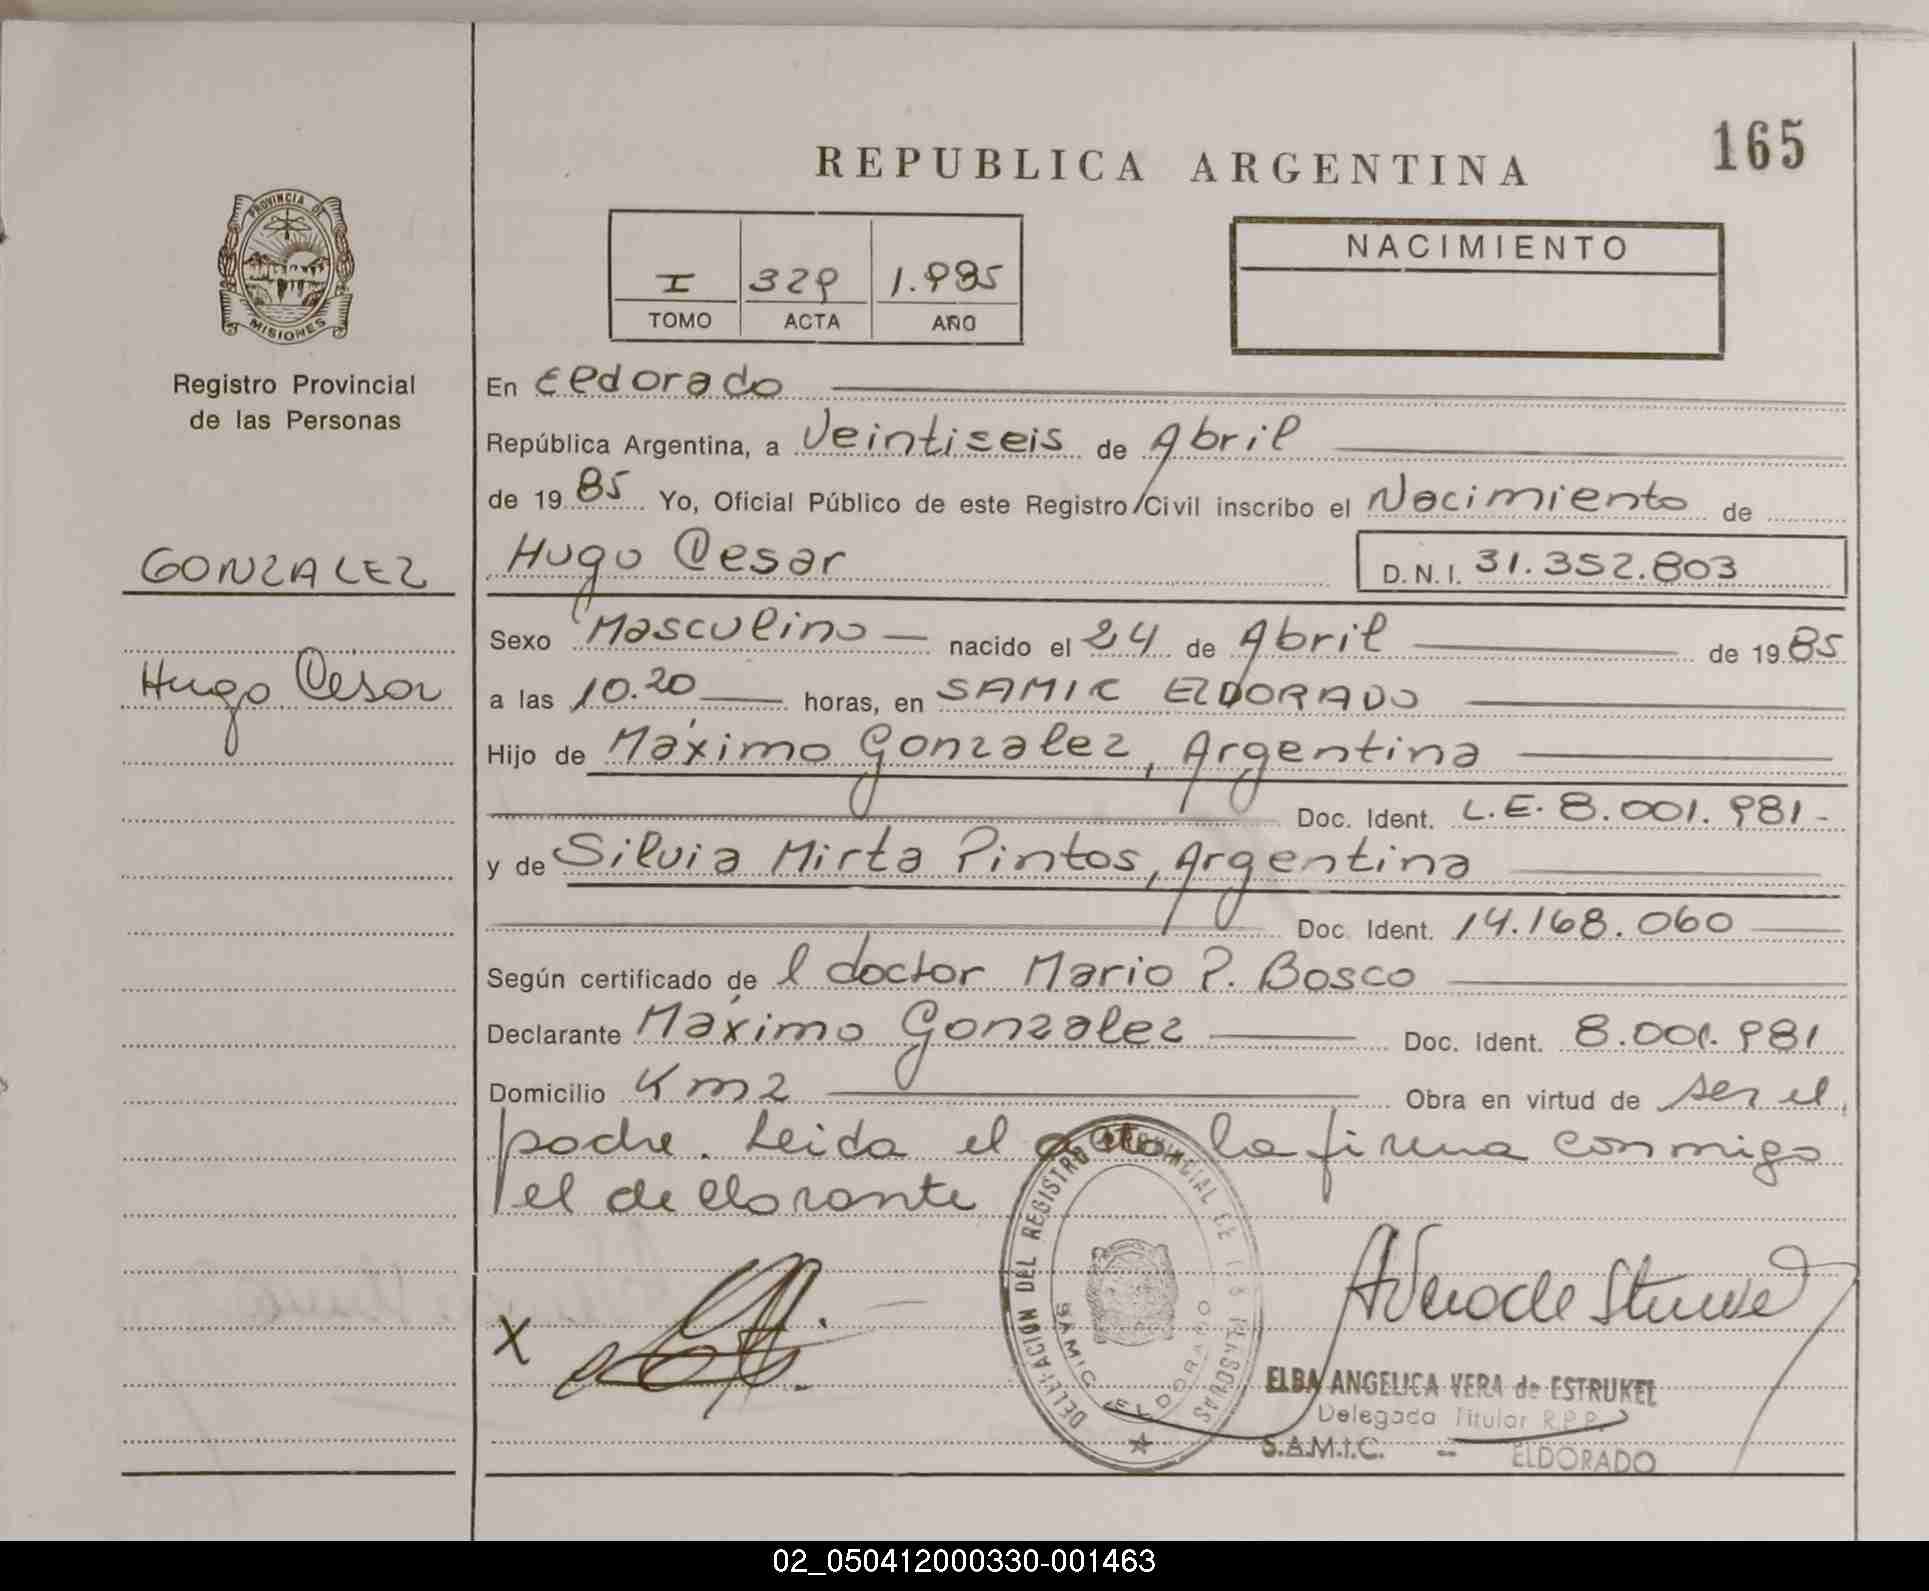 165
REPUBLICA ARGENTINA
PROVINCIA DE
MISIONES
Registro Provincial
de las Personas
GONZALEZ
Hugo Cesar
I 329 1.985
TOMO ACTA AÑO
NACIMIENTO
En Eldorado
República Argentina, a Veintiseis de Abril
de 1985 Yo, Oficial Público de este Registro Civil inscribo el Nacimiento de
Hugo Cesar D.N.I. 31.352.803
Sexo Masculino nacido el 24 de Abril de 1985
a las 10.20 horas, en SAMIC ELDORADO
Hijo de Máximo Gonzalez, Argentina
Doc. Ident. L.E. 8.001.981-
y de Silvia Mirta Pintos, Argentina
Doc. Ident. 14.168.060
Según certificado de l doctor Mario P. Bosco
Declarante Máximo Gonzalez Doc. Ident. 8.001.981
Domicilio Km2 Obra en virtud de ser el
padre. Leida el acta la firma conmigo
el declarante
X
DELEGACION DEL REGISTRO PROVINCIAL DE LAS PERSONAS
SAMIC ELDORADO
ELBA ANGELICA VERA de ESTRUKEL
Delegada Titular R.P.P.
S.A.M.I.C. -- ELDORADO
02_050412000330-001463